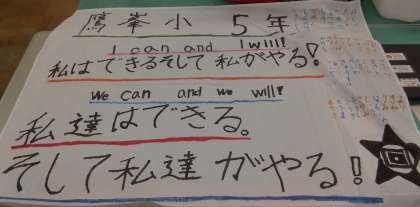 鷹峯小 5年
I can and I will!
私はできるそして私がやる!
We can and we will!
私達はできる。
そして私達がやる!